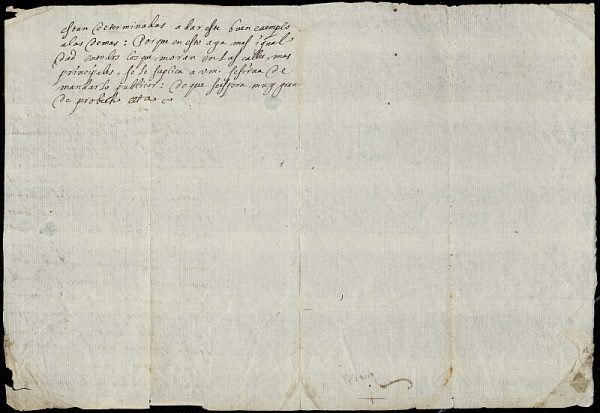 estan determinadas a dar este buen exemplo
a las demas: Porque en esto aya mas igual
dad en todos los que moran en las calles mas
principales, se le suplica a vm. se sirva de
mandarlo publicar: de que se espera muy gran
de probecho etta